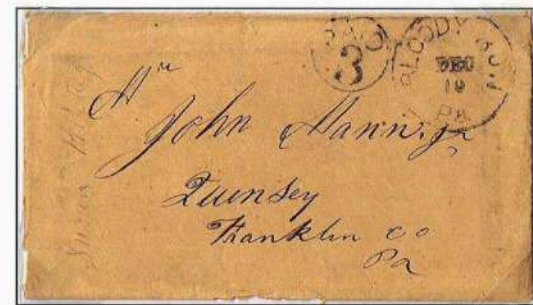 PAID
3
BLOODY RUN
DEC
19
PA.
Mr
John Mann Jr
Quinsey
Franklin co
Pa